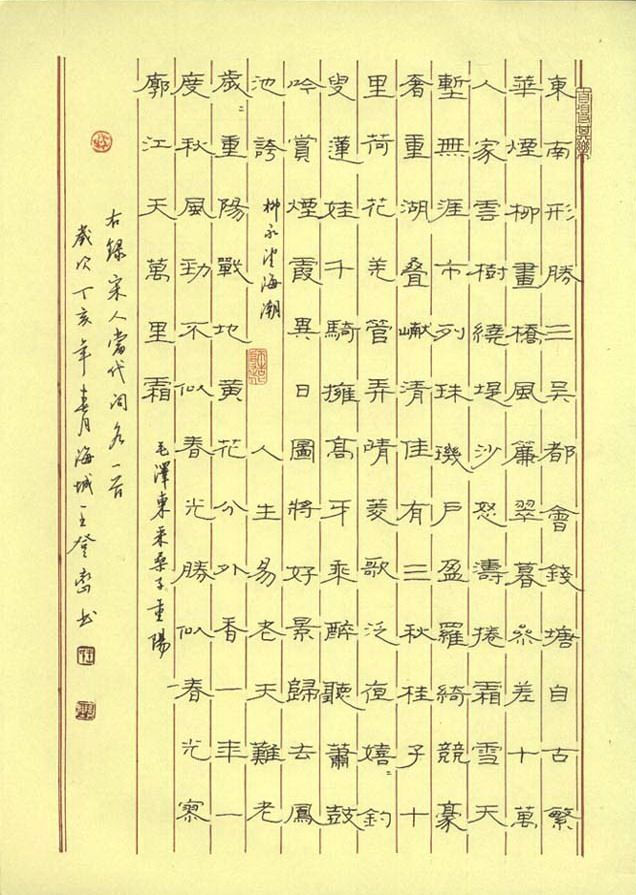 東南形勝三吳都會錢塘自古繁
華煙柳畫橋風簾翠暮叅差十萬
人家雲樹繞堤沙怒濤捲霜雪天
塹無涯市列珠璣戶盈羅綺競豪
奢重湖叠巘清佳有三秋桂子十
里荷花羌管弄晴菱歌泛夜嬉〻釣
叟蓮娃千騎擁高牙乘醉聽蕭鼓
吟賞煙霞異日圖將好景歸去鳳
池誇
柳永望海潮
人生易老天難老
歲〻重陽戰地黃花分外香一年一
度秋風勁不似春光勝似春光寥
廓江天萬里霜
毛澤東采桑子重陽
右錄宋人當代詞各一首
歲次丁亥年 海城王登巒书